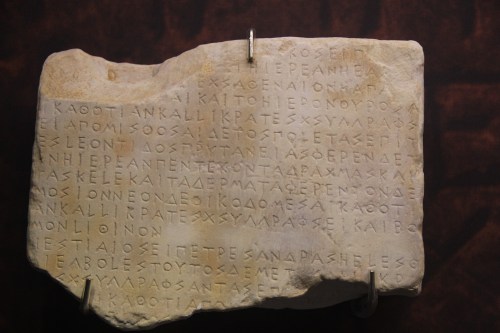 ΚΟΣΕΙΠ
ΙΗΙΕΡΕΑΝΗΕΑ
ΕΧΣΑΘΕΝΑΙΟΝΗΑΠΑ
ΑΙΚΑΙΤΟΗΙΕΡΟΝΘΥΡΟΣΑ
ΙΚΑΘΟΤΙΑΝΚΑΛΛΙΚΡΑΤΕΣΧΣΥΓΓΡΑΦΣ
ΕΙΑΠΟΜΙΣΘΟΣΑΙΔΕΤΟΣΠΟΛΕΤΑΣΕΠΙΤ
ΕΣΛΕΟΝΤΙΔΟΣΠΡΥΤΑΝΕΙΑΣΦΕΡΕΝΔΕΤ
ΕΝΗΙΕΡΕΑΝΠΕΝΤΕΚΟΝΤΑΔΡΑΧΜΑΣΚΑΙ
ΤΑΣΚΕΛΕΚΑΙΤΑΔΕΡΜΑΤΑΦΕΡΕΝΤΟΝΔΕ
ΜΟΣΙΟΝΝΕΟΝΔΕΟΙΚΟΔΟΜΕΣΑΙΚΑΘΟΤΙ
ΑΝΚΑΛΛΙΚΡΑΤΕΣΧΣΥΓΓΡΑΦΣΕΙΚΑΙΒΟ
ΜΟΝΛΙΘΙΝΟΝ
ΗΕΣΤΙΑΙΟΣΕΙΠΕΤΡΕΣΑΝΔΡΑΣΗΕΛΕΣΘ
ΑΙΕΓΒΟΛΕΣΤΟΥΤΟΣΔΕΜΕΤ
ΣΧΣΥΓΓΡΑΦΣΑΝΤΑΣΕΠ
ΙΚΑΘΟΤΙΑΠΟ